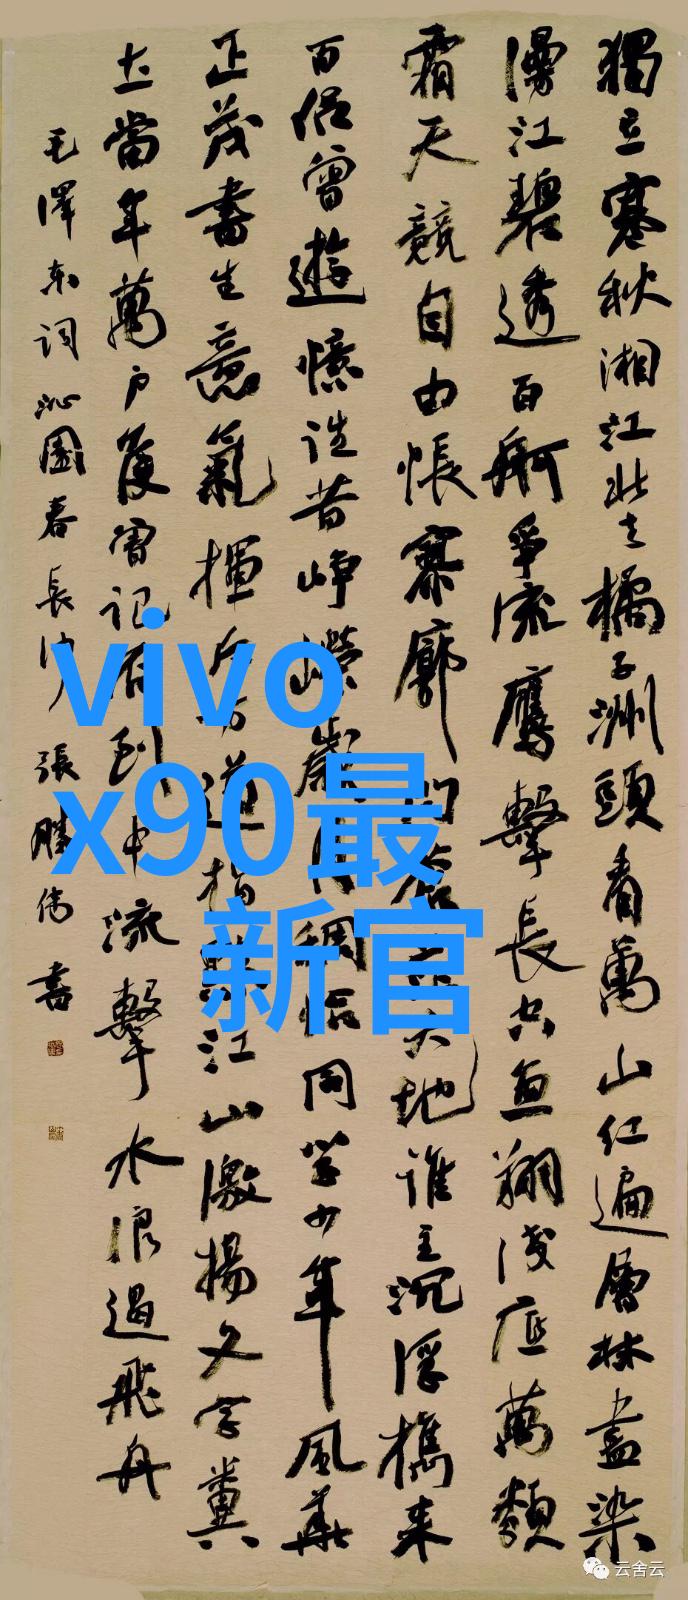 獨立寒秋湘江北去橘子洲頭看萬山紅遍層林盡染
漫江碧透百舸爭流鷹擊長空魚翔淺底萬類
霜天競自由悵寥廓問蒼茫大地誰主沉浮攜來
百侶曾遊憶往昔崢嶸歲月稠恰同學少年風華
正茂書生意氣揮斥方遒指點江山激揚文字糞
土當年萬戶侯曾記否到中流擊水浪遏飛舟
毛澤東詞沁園春長沙張勝偉書
vivo
x90最
新官
云舍云